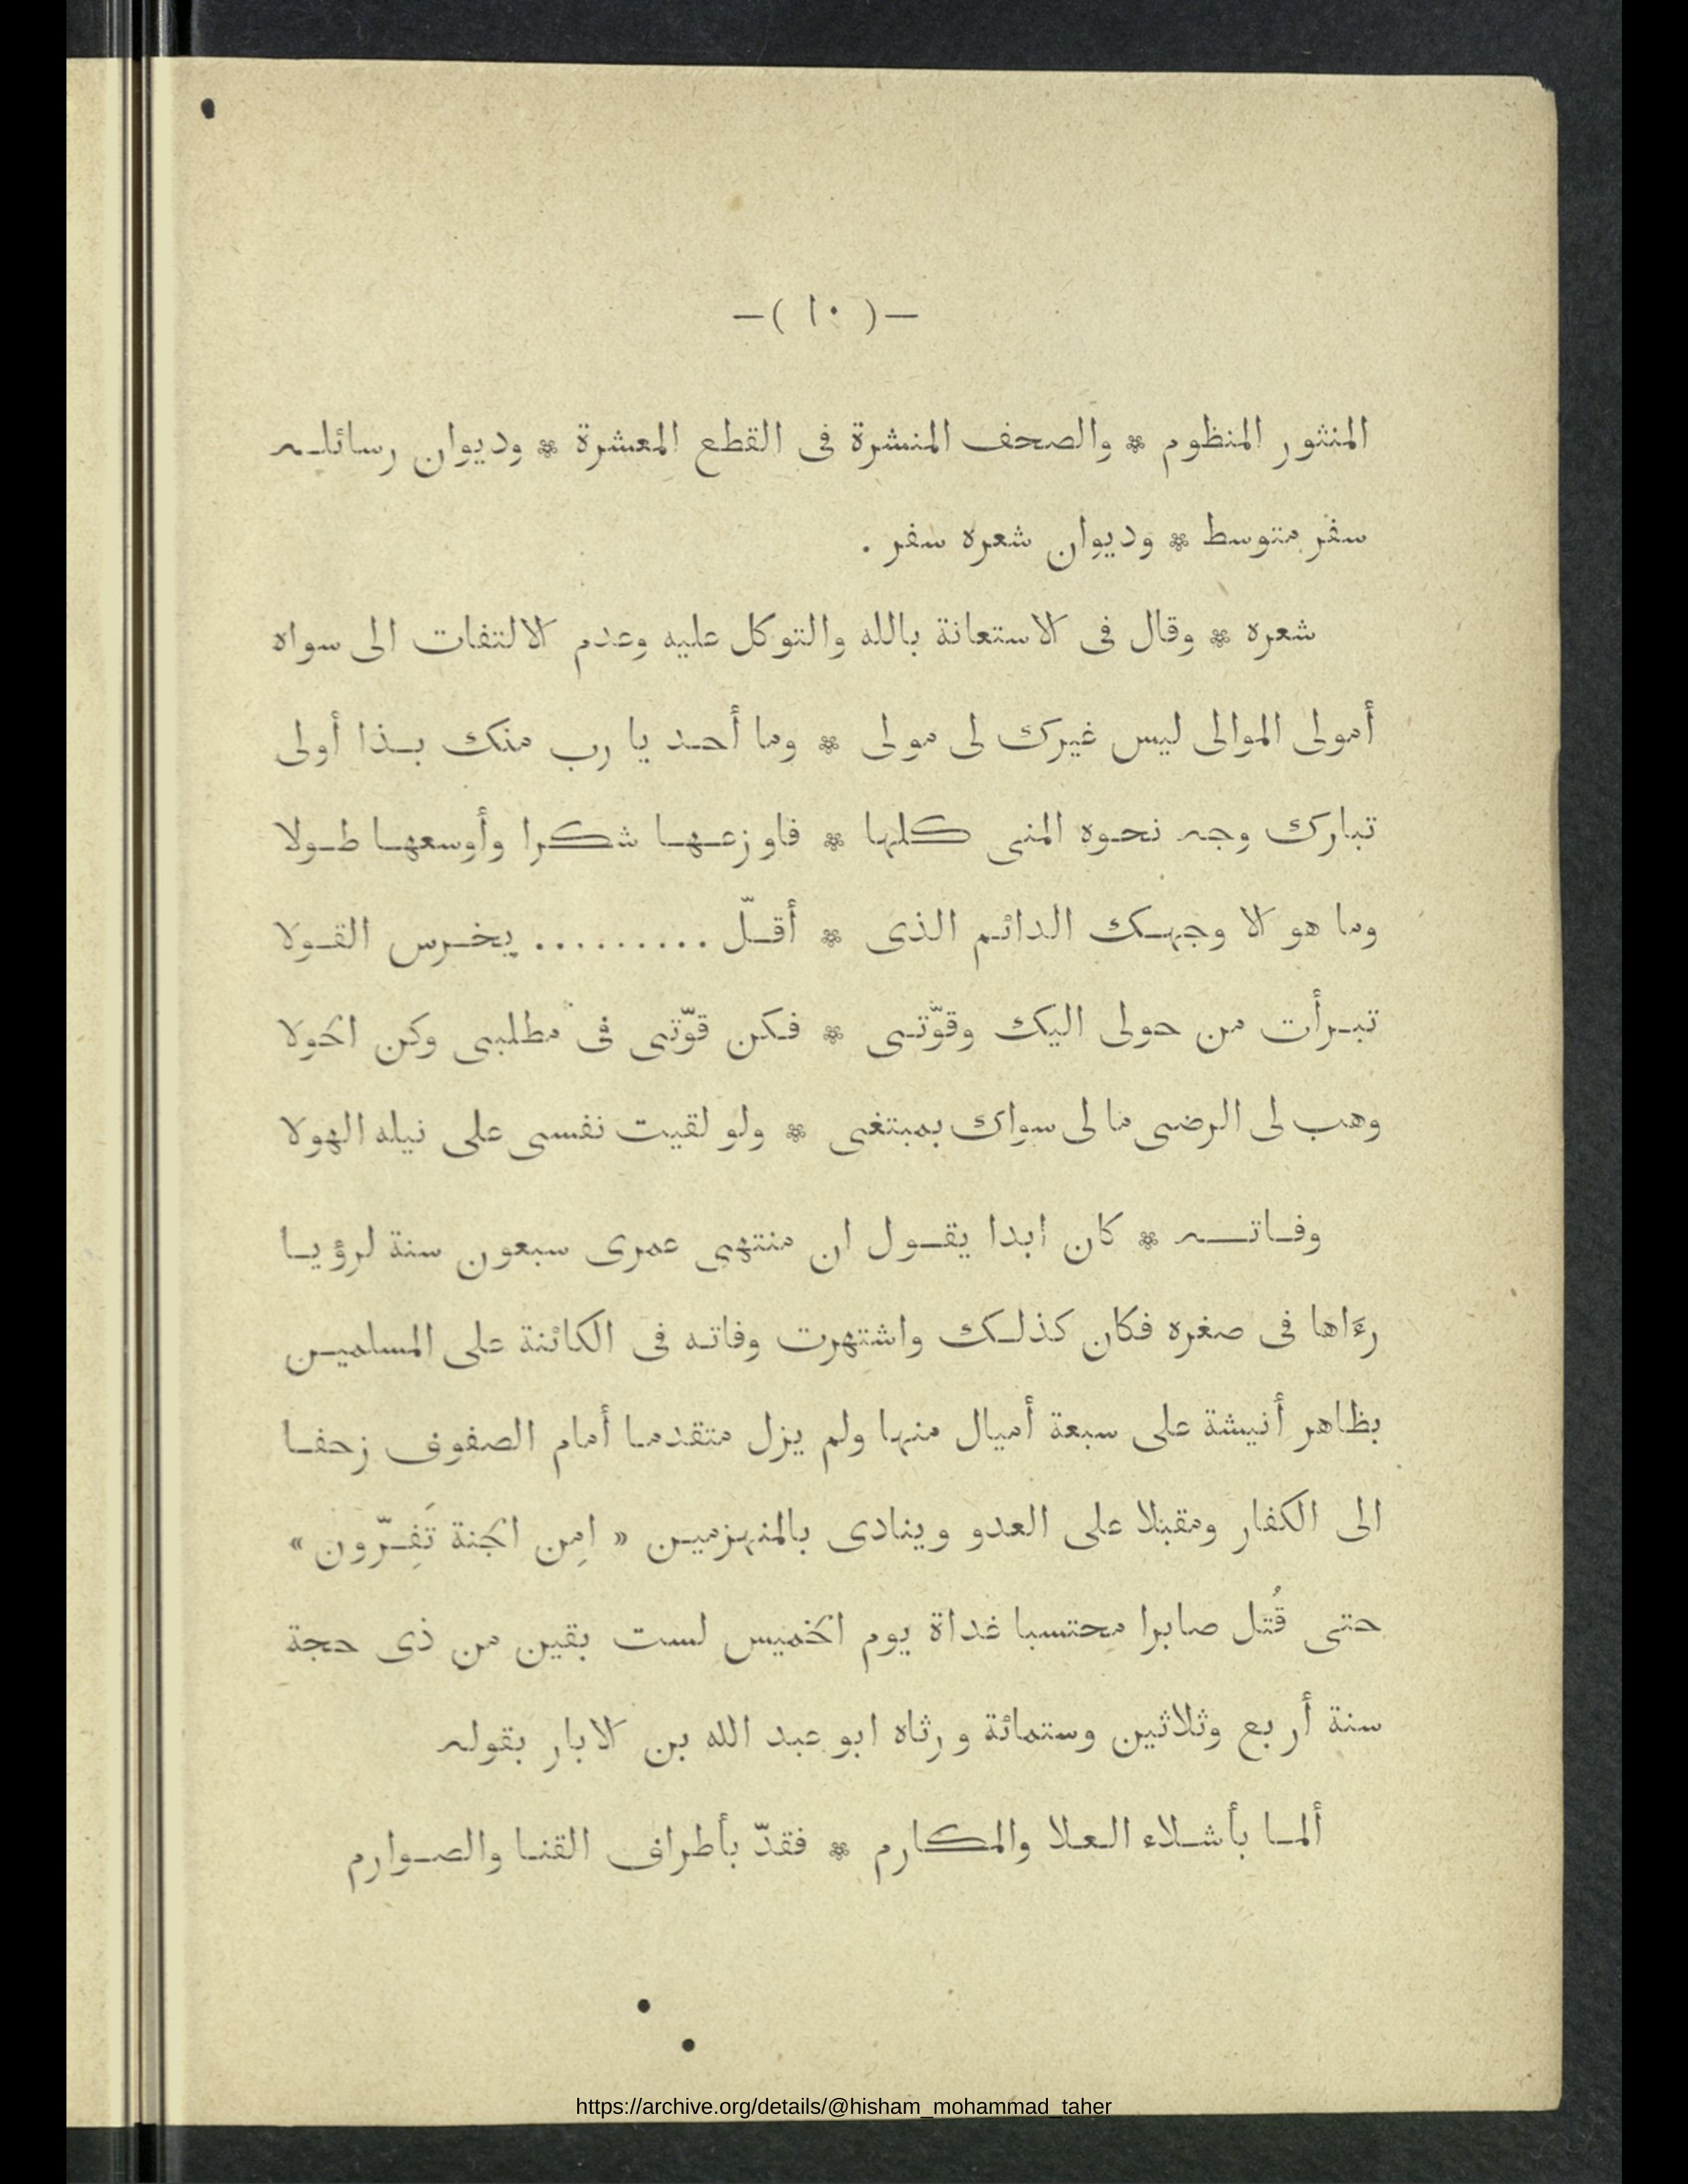 —( ١٠ )—
المنثور المنظوم * والصحف المنشرة فى القطع المعشرة * وديوان رسائله
سفر متوسط * وديوان شعره سفر .
شعره * وقال فى الاستعانة بالله والتوكل عليه وعدم الالتفات الى سواه
أمولى الموالى ليس غيرك لى مولى * وما أحد يا رب منك بذا أولى
تبارك وجه نحوه المنى كلها * فاوزعها شكرا وأوسعها طولا
وما هو الا وجهك الدائم الذى * أقلّ ......... يخرس القولا
تبرأت من حولى اليك وقوّتى * فكن قوّتى فى مطلبى وكن الحولا
وهب لى الرضى ما لى سواك بمبتغى * ولو لقيت نفسى على نيله الهولا
وفاته * كان ابدا يقول ان منتهى عمرى سبعون سنة لرؤيا
رءَاها فى صغره فكان كذلك واشتهرت وفاته فى الكائنة على المسلمين
بظاهر أنيشة على سبعة أميال منها ولم يزل متقدما أمام الصفوف زحفا
الى الكفار ومقبلا على العدو وينادى بالمنهزمين « امِن الجنة تَفِرّون »
حتى قُتل صابرا محتسبا غداة يوم الخميس لست بقين من ذى حجة
سنة أربع وثلاثين وستمائة ورثاه ابو عبد الله بن الابار بقوله
ألما بأشلاء العلا والمكارم * فقدّ بأطراف القنا والصوارم
https://archive.org/details/@hisham_mohammad_taher